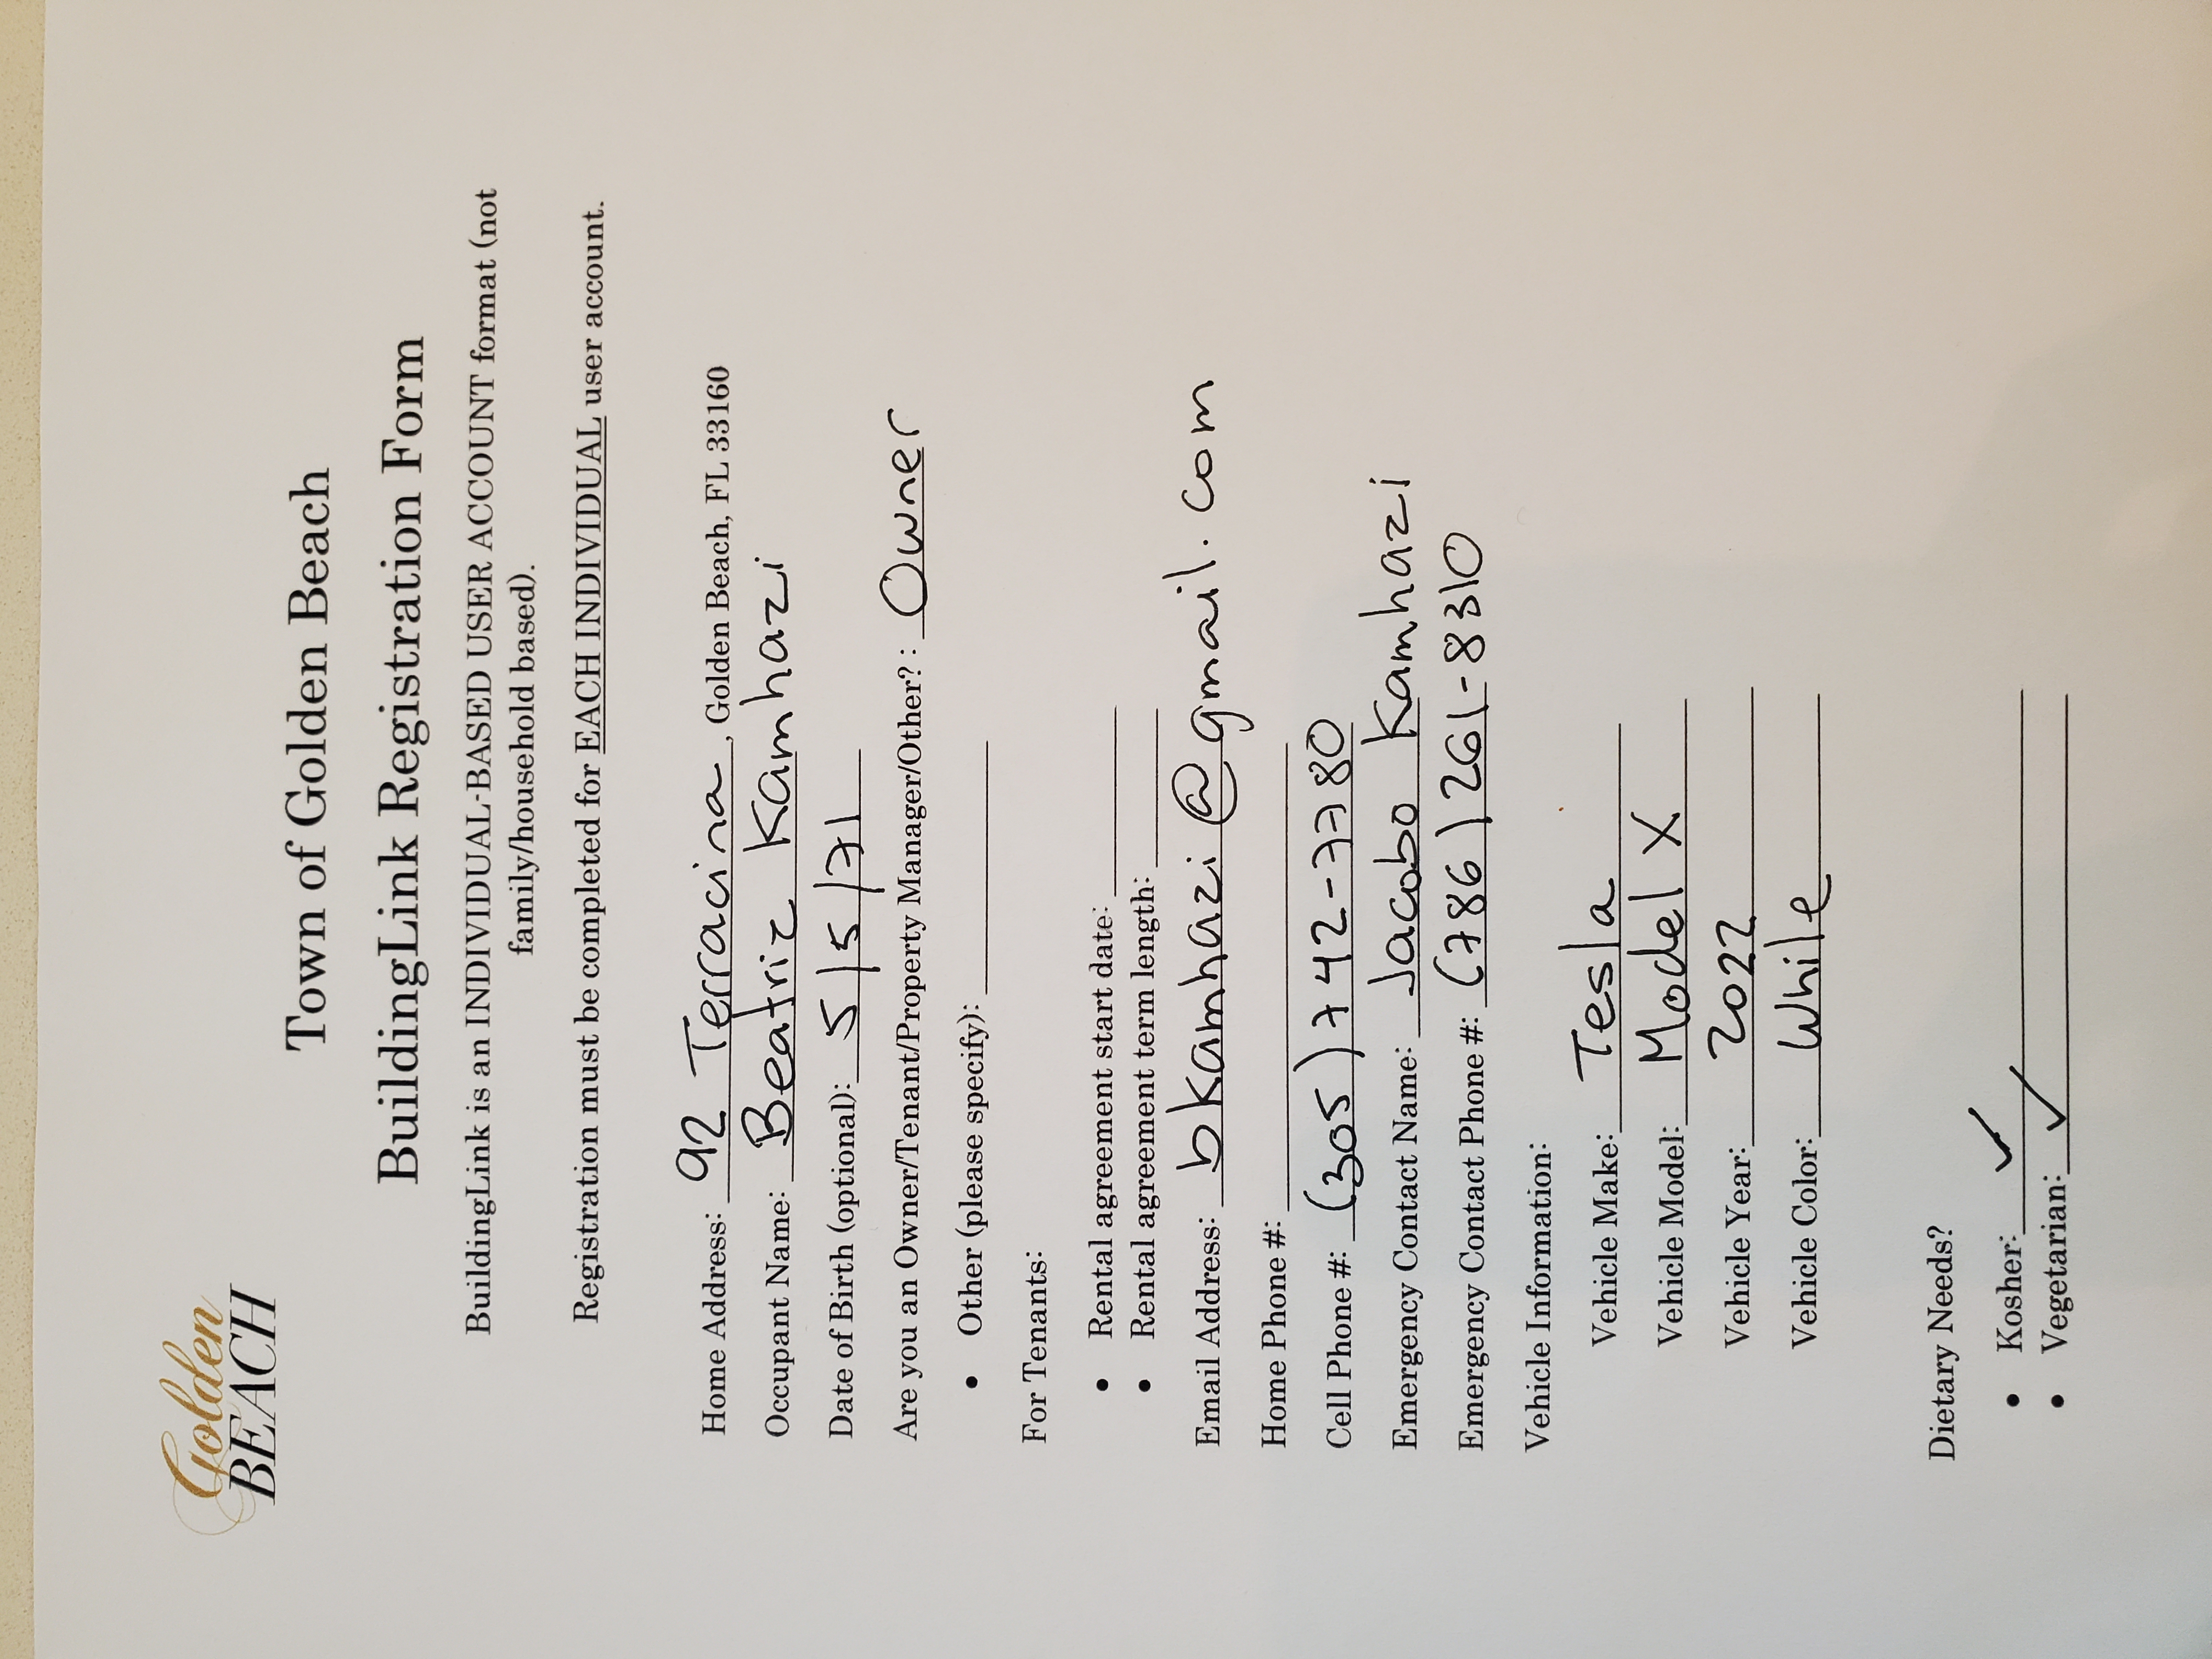 Golden
BEACH
Town of Golden Beach
BuildingLink Registration Form
BuildingLink is an INDIVIDUAL-BASED USER ACCOUNT format (not
family/household based).
Registration must be completed for EACH INDIVIDUAL user account.
Home Address: 92 Terracina, Golden Beach, FL 33160
Occupant Name: Beatriz Kamhazi
Date of Birth (optional): 5/5/71
Are you an Owner/Tenant/Property Manager/Other? : Owner
• Other (please specify):
For Tenants:
• Rental agreement start date:
• Rental agreement term length:
Email Address: bkamhazi@gmail.com
Home Phone #:
Cell Phone #: (305) 742-7780
Emergency Contact Name: Jacobo Kamhazi
Emergency Contact Phone #: (786) 261-8310
Vehicle Information:
Vehicle Make: Tesla
Vehicle Model: Model X
Vehicle Year: 2022
Vehicle Color: White
Dietary Needs?
• Kosher: ✓
• Vegetarian: ✓